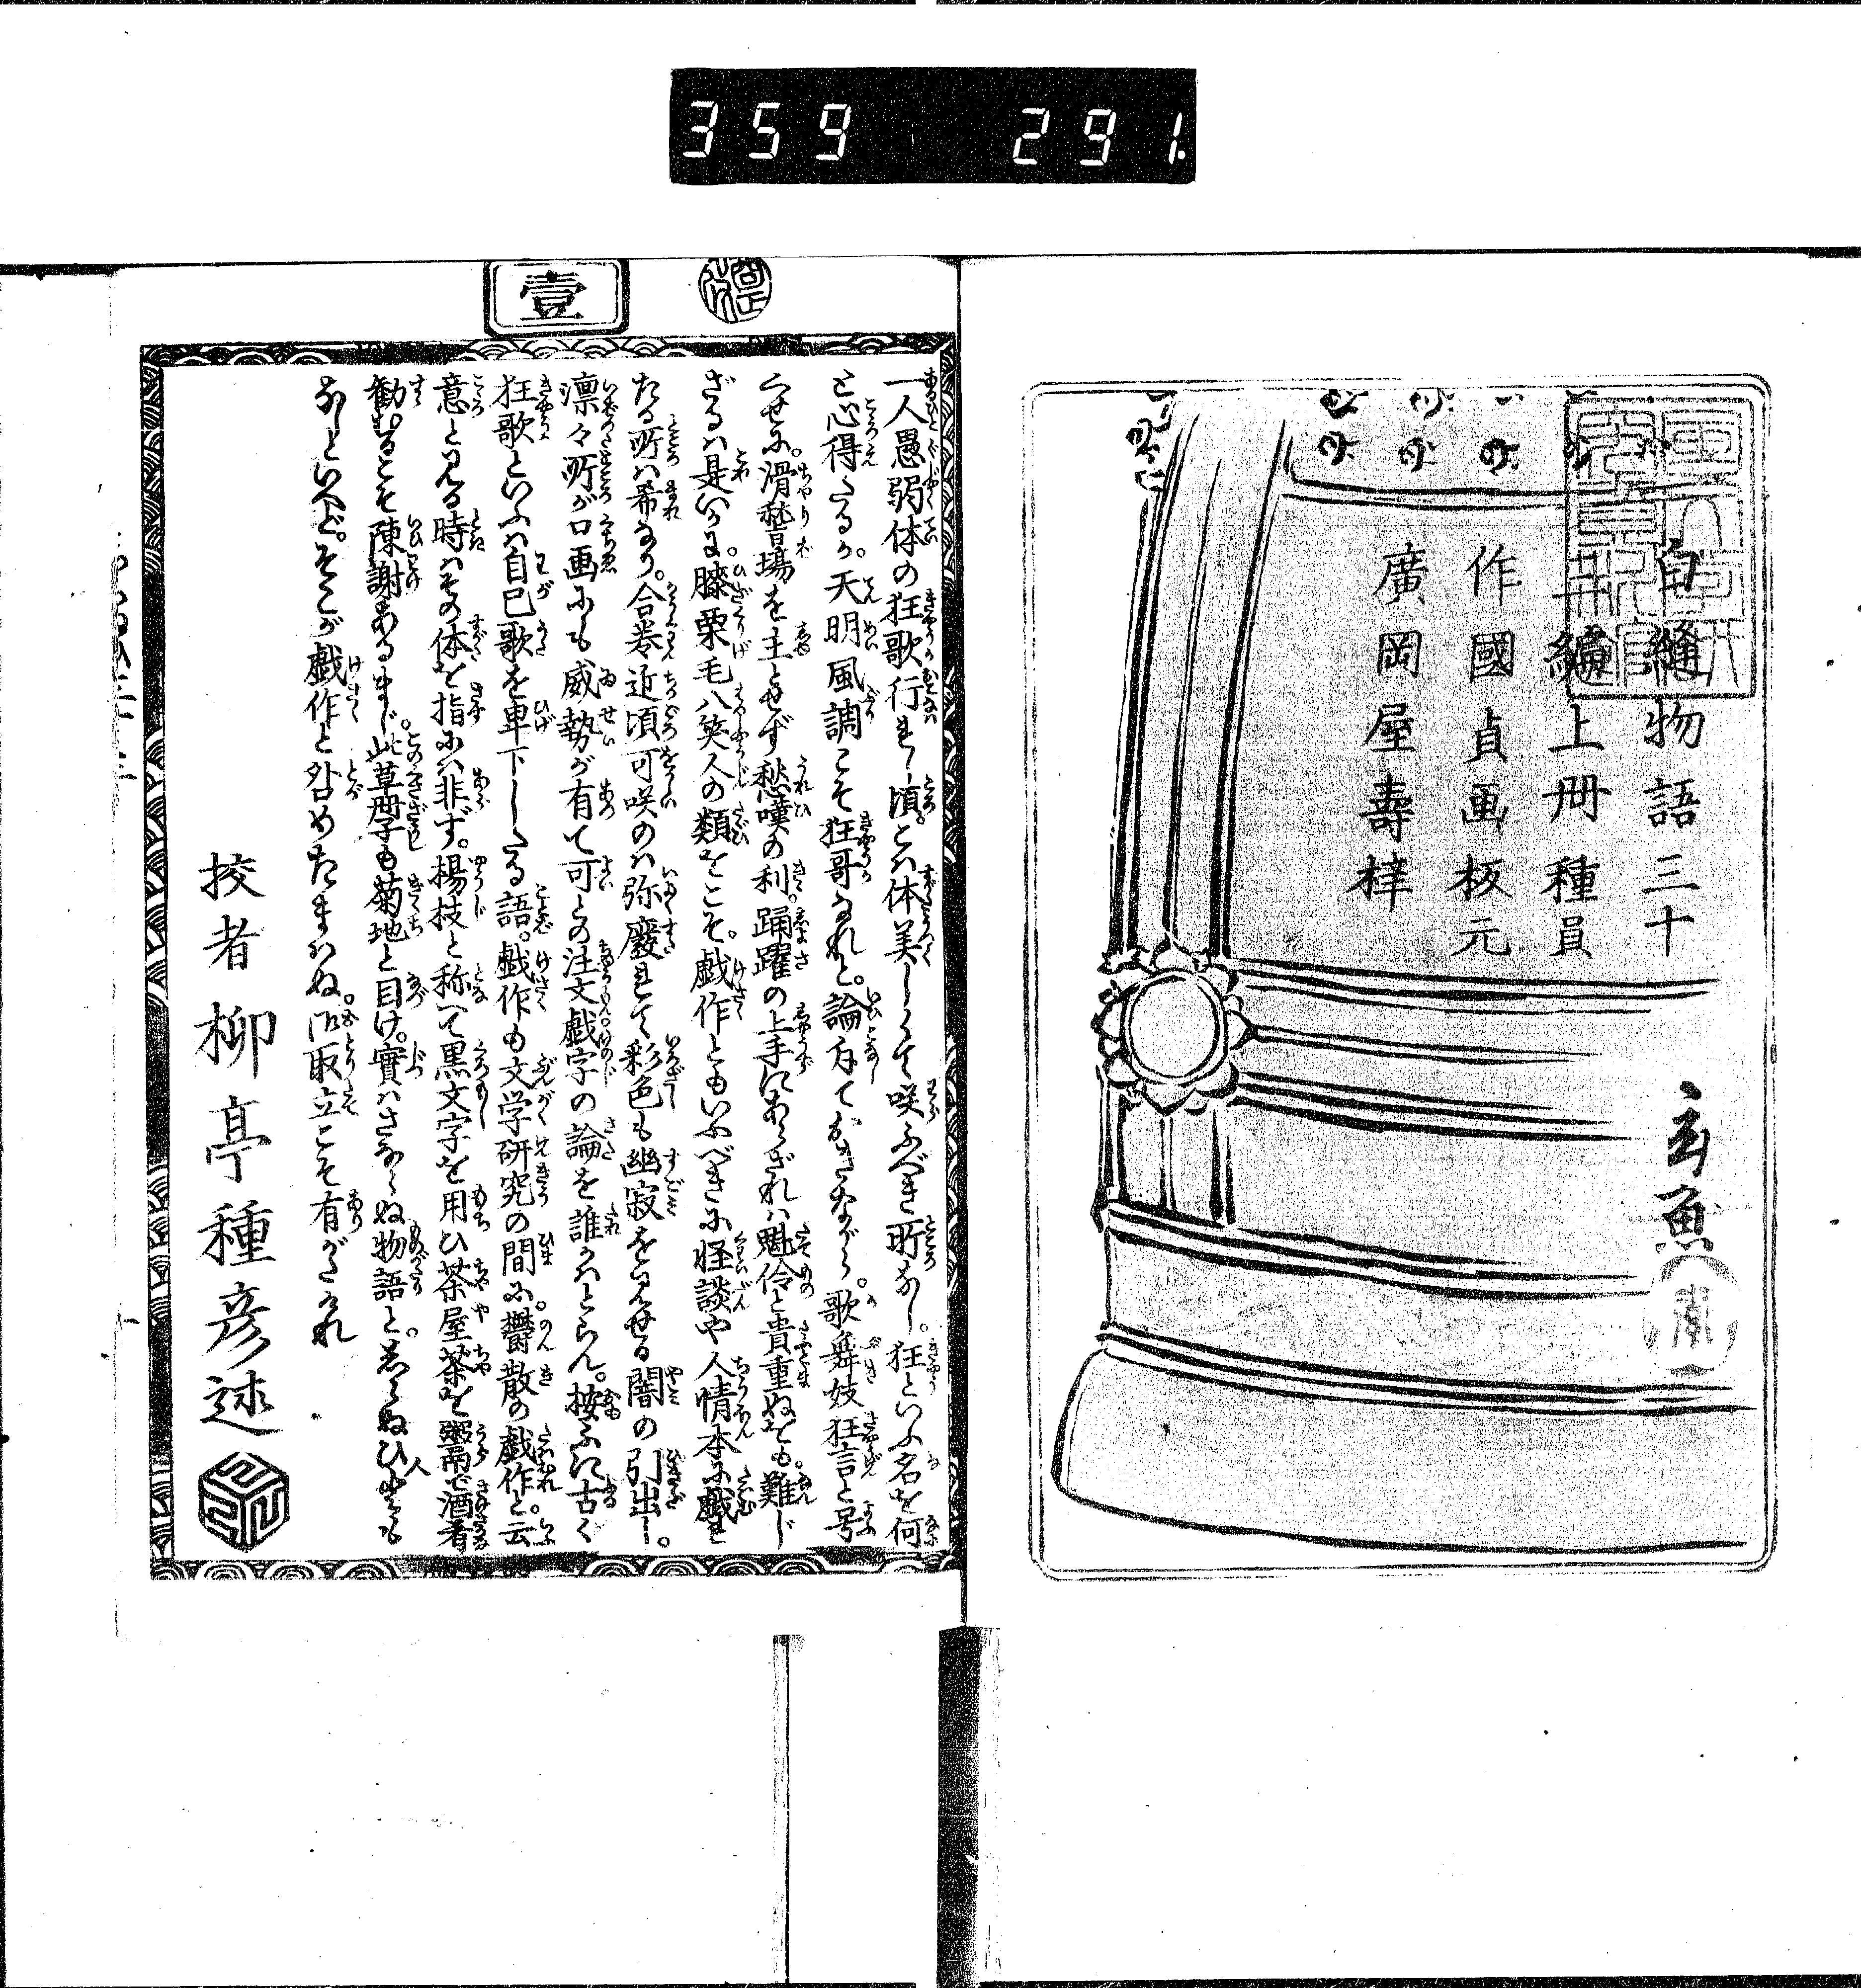 359 291.
白縫物語三十
編上册 種員
作 國貞画 板元
廣岡屋壽梓
玄魚
壹
一人愚弱体の狂歌行れし頃とハ体美しくて咲ふべき所なし。狂といふ名を何
と心得たるか。天明風調こそ狂哥なれと。論ておきながら。歌舞妓狂言と号
くせに。滑稽場を主とせず愁嘆の利。踊躍の上手にあらざれバ魁伶と貴重ぬぞも。難じ
ざるハ是いかに。膝栗毛八笑人の類をこそ。戯作ともいふべきに怪談や人情本に戯れ
たる所ハ希なり。合巻近頃可咲のハ弥廢れて彩色も幽寂を见せる闇の引出し。
凛々所が口画にも威勢が有て可との注文戯字の論を誰かハとらん。按ふに古く
狂歌といふハ自己歌を卑下したる語。戯作も文学研究の間に。鬱散の戯作と云
意と见る時ハその体を指にハ非ず。楊枝と称へて黒文字を用ひ茶屋茶を粥而已酒肴
勸るこそ陳謝あるまじ。此草册子も菊地と目け。實ハさならぬ物語と。しらぬ人ひとも
なしといへど。そこが戯作と咎めたまハぬ。御取立こそ有がたけれ
挍者 柳亭種彦述